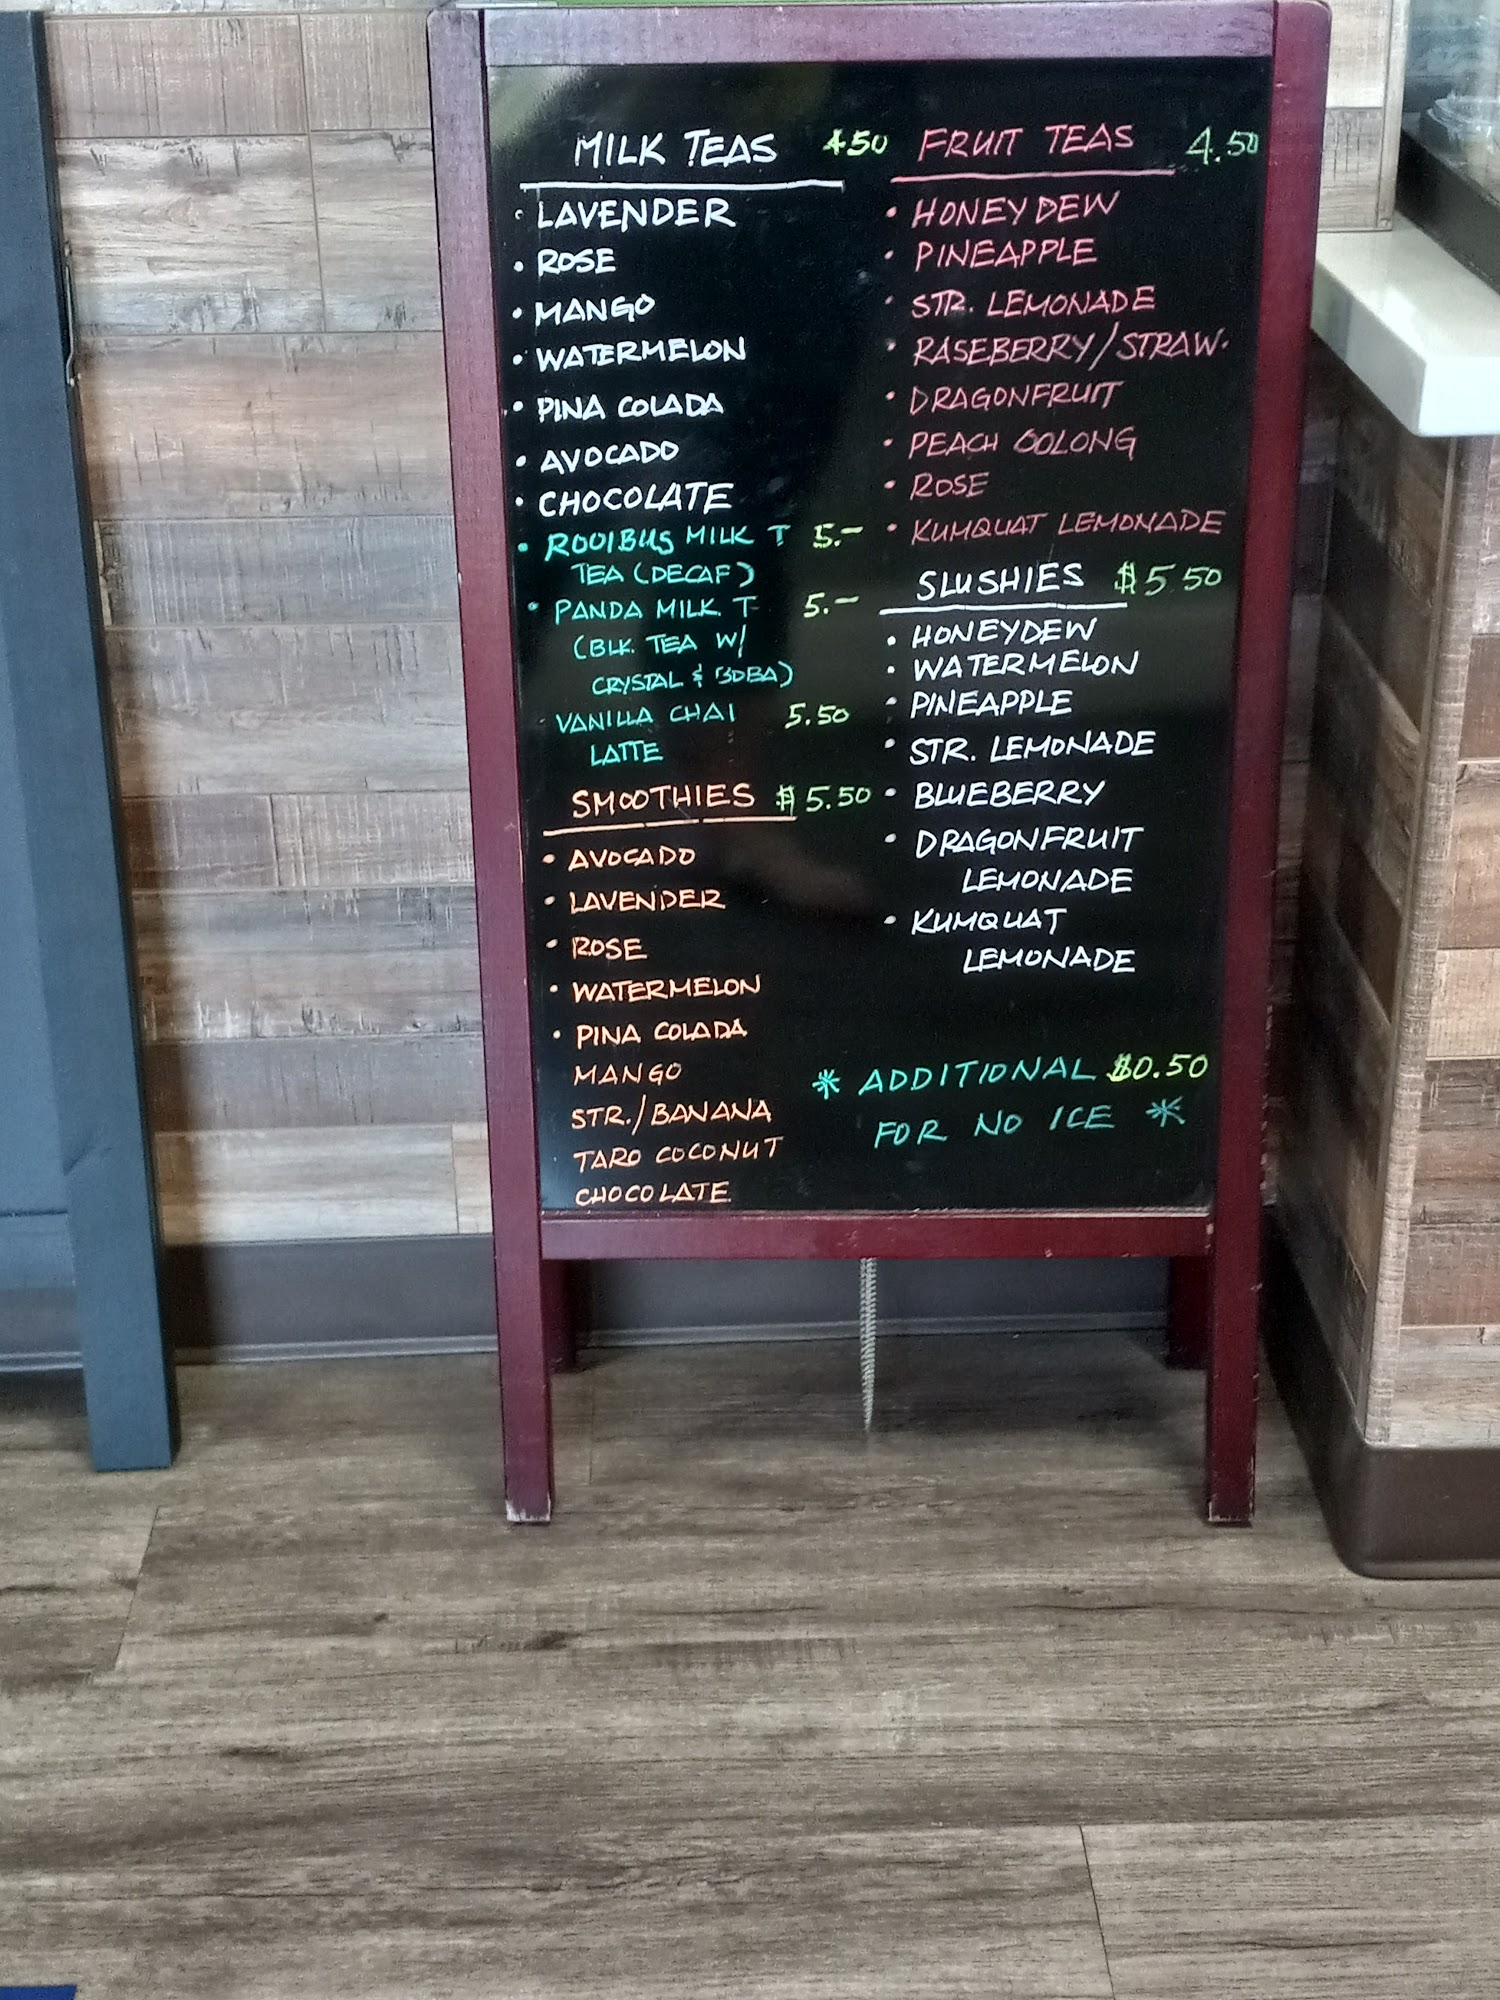 MILK TEAS 450
• LAVENDER
• ROSE
• MANGO
• WATERMELON
• PINA COLADA
• AVOCADO
• CHOCOLATE
• ROOIBUS MILK T 5.-
TEA (DECAF)
• PANDA MILK T 5.-
(BLK. TEA W/
CRYSTAL & BOBA)
• VANILLA CHAI 5.50
LATTE
SMOOTHIES $5.50
• AVOCADO
• LAVENDER
• ROSE
• WATERMELON
• PINA COLADA
MANGO
STR./BANANA
• TARO COCONUT
CHOCOLATE
FRUIT TEAS 4.50
• HONEYDEW
• PINEAPPLE
• STR. LEMONADE
• RASEBERRY/STRAW.
• DRAGONFRUIT
• PEACH OOLONG
• ROSE
• KUMQUAT LEMONADE
SLUSHIES $5 50
• HONEYDEW
• WATERMELON
• PINEAPPLE
• STR. LEMONADE
• BLUEBERRY
• DRAGONFRUIT
LEMONADE
• KUMQUAT
LEMONADE
* ADDITIONAL $0.50
FOR NO ICE *